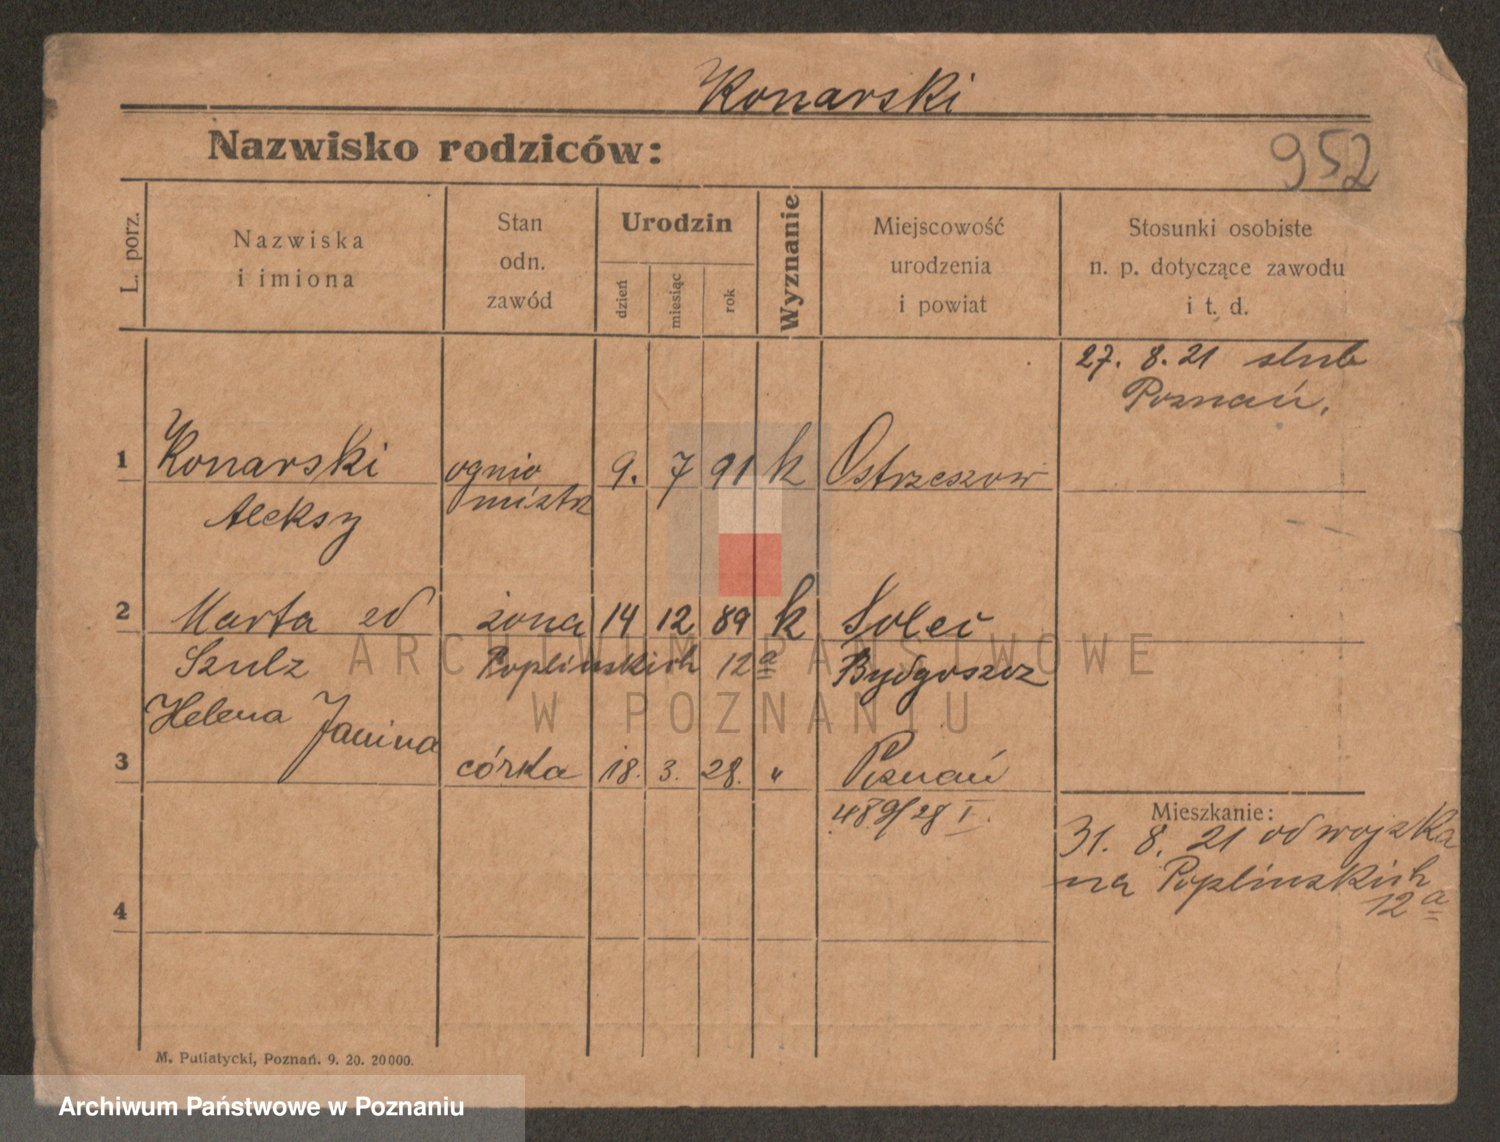 Konarski
Nazwisko rodziców:
952
L. porz.
Nazwiska
i imiona
Stan
odn.
zawód
Urodzin
dzień
miesiąc
rok
Wyznanie
Miejscowość
urodzenia
i powiat
Stosunki osobiste
n. p. dotyczące zawodu
i t. d.
27. 8. 21 slub
Poznań.
1 Konarski ognio 9. 7 91 k Ostrzeszow
Aleksy mistrz
2 Marta ed żona 14 12 89 k Solec
Szulz Poplinskich 12a Bydgoszcz
Helena Janina
3 córka 18. 3. 28. " Poznań
489/28 I.
Mieszkanie:
31. 8. 21 od wojska
na Poplinskich
12a
4
M. Putiatycki, Poznań. 9. 20. 20000.
ARCHIWUM PAŃSTWOWE
W POZNANIU
Archiwum Państwowe w Poznaniu